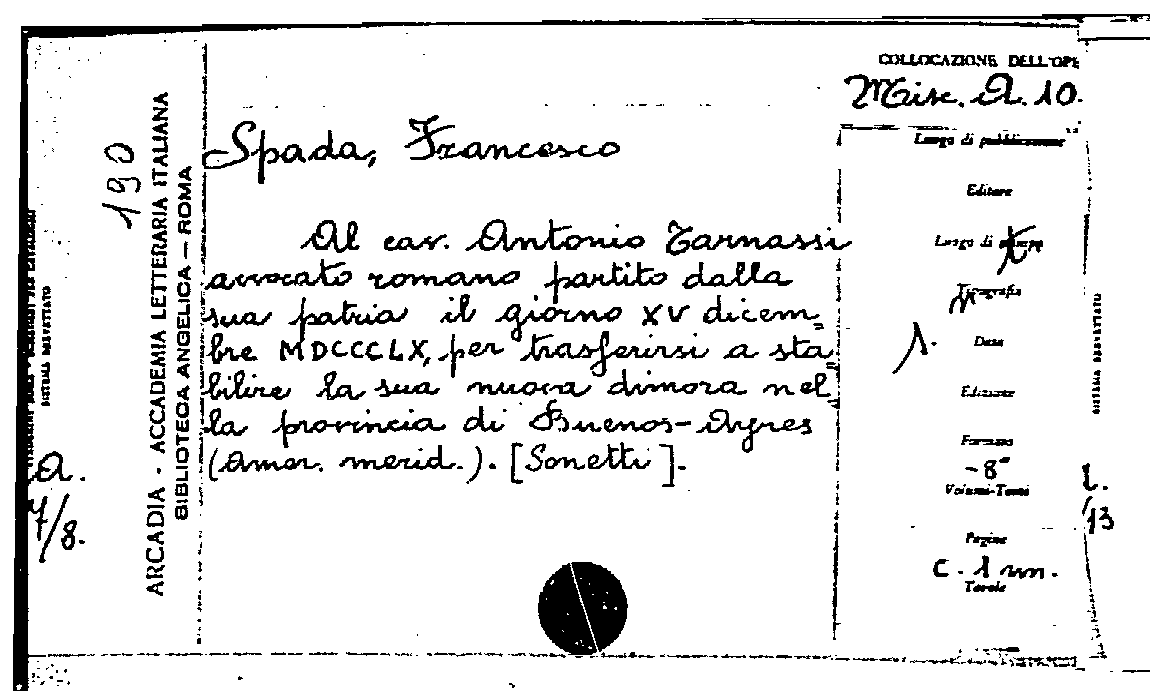 COLLOCAZIONE DELL'OPE
Misc. A. 10.
190
ARCADIA - ACCADEMIA LETTERARIA ITALIANA
BIBLIOTECA ANGELICA — ROMA
Spada, Francesco
Al cav. Antonio Tarnassi
avvocato romano partito dalla
sua patria il giorno XV dicem=
bre MDCCCLX, per trasferirsi a sta=
bilire la sua nuova dimora nel=
la provincia di Buenos-Ayres
(Amer. merid.). [Sonetti].
Luogo di pubblicazione
Editore
Luogo di stampa
Tipografia
Data
Edizione
Formato
-8°
Volumi-Tomi
Pagine
c. 1 nn.
Tavole
A.
7/8.
l.
/13
SISTEMA BREVETTATO
SISTEMA BREVETTATO